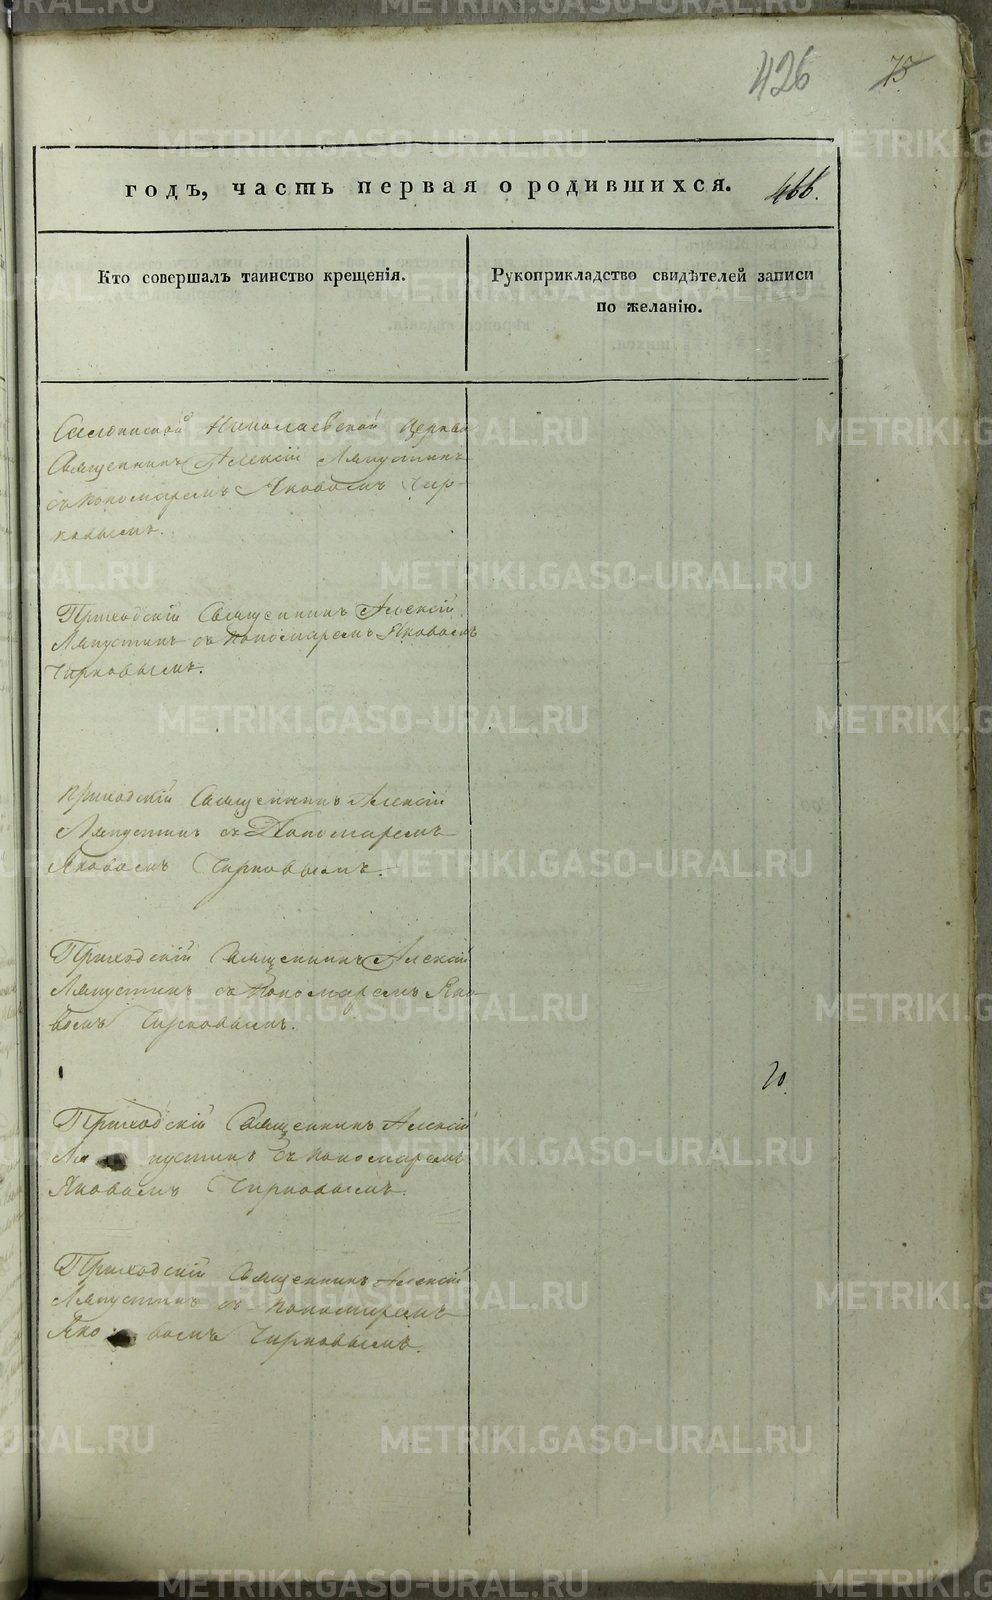 426
75
годъ, часть первая о родившихся.
466.
Кто совершалъ таинство крещенія.
Рукоприкладство свидѣтелей записи
по желанію.
Николаевской церкви
Священникъ Алексій Ляпустинъ
съ пономаремъ Яковомъ Чир-
ковымъ.
Приходскій Священникъ Алексій
Ляпустинъ съ пономаремъ Яковомъ
Чирковымъ.
приходскій Священникъ Алексій
Ляпустинъ съ Пономаремъ
Яковомъ Чирковымъ.
Приходскій Священникъ Алексій
Ляпустинъ съ пономаремъ Яко-
вомъ Чирковымъ.
20.
Приходскій Священникъ Алексій
Ляпустинъ съ пономаремъ
Яковомъ Чирковымъ.
Приходскій Священникъ Алексій
Ляпустинъ съ пономаремъ
Яковомъ Чирковымъ.
METRIKI.GASO-URAL.RU